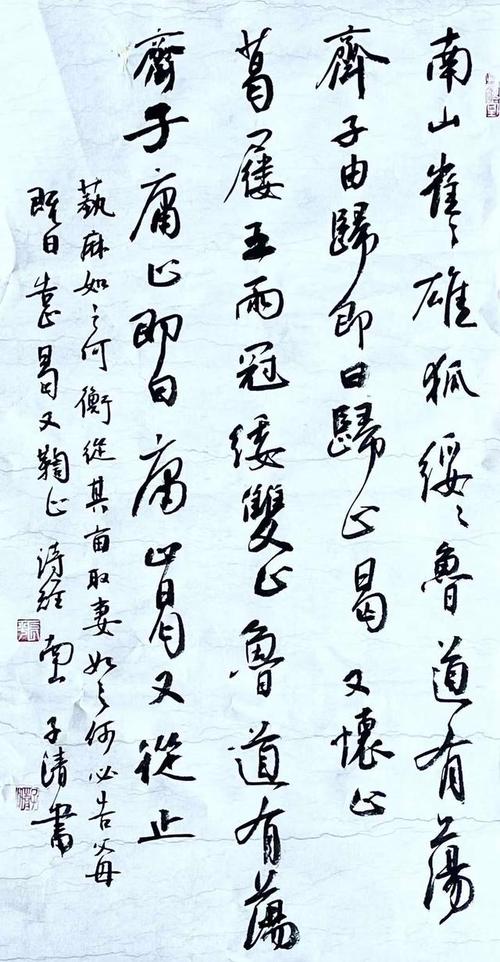 南山崔〻雄狐綏〻魯道有蕩
齊子由歸即曰歸止曷又懷止
葛屨五兩冠緌雙止魯道有蕩
齊子庸止即曰庸止曷又從止
蓺麻如之何衡從其亩取妻如之何必告父母
既曰告止曷又鞠止 詩經 南山 子清書